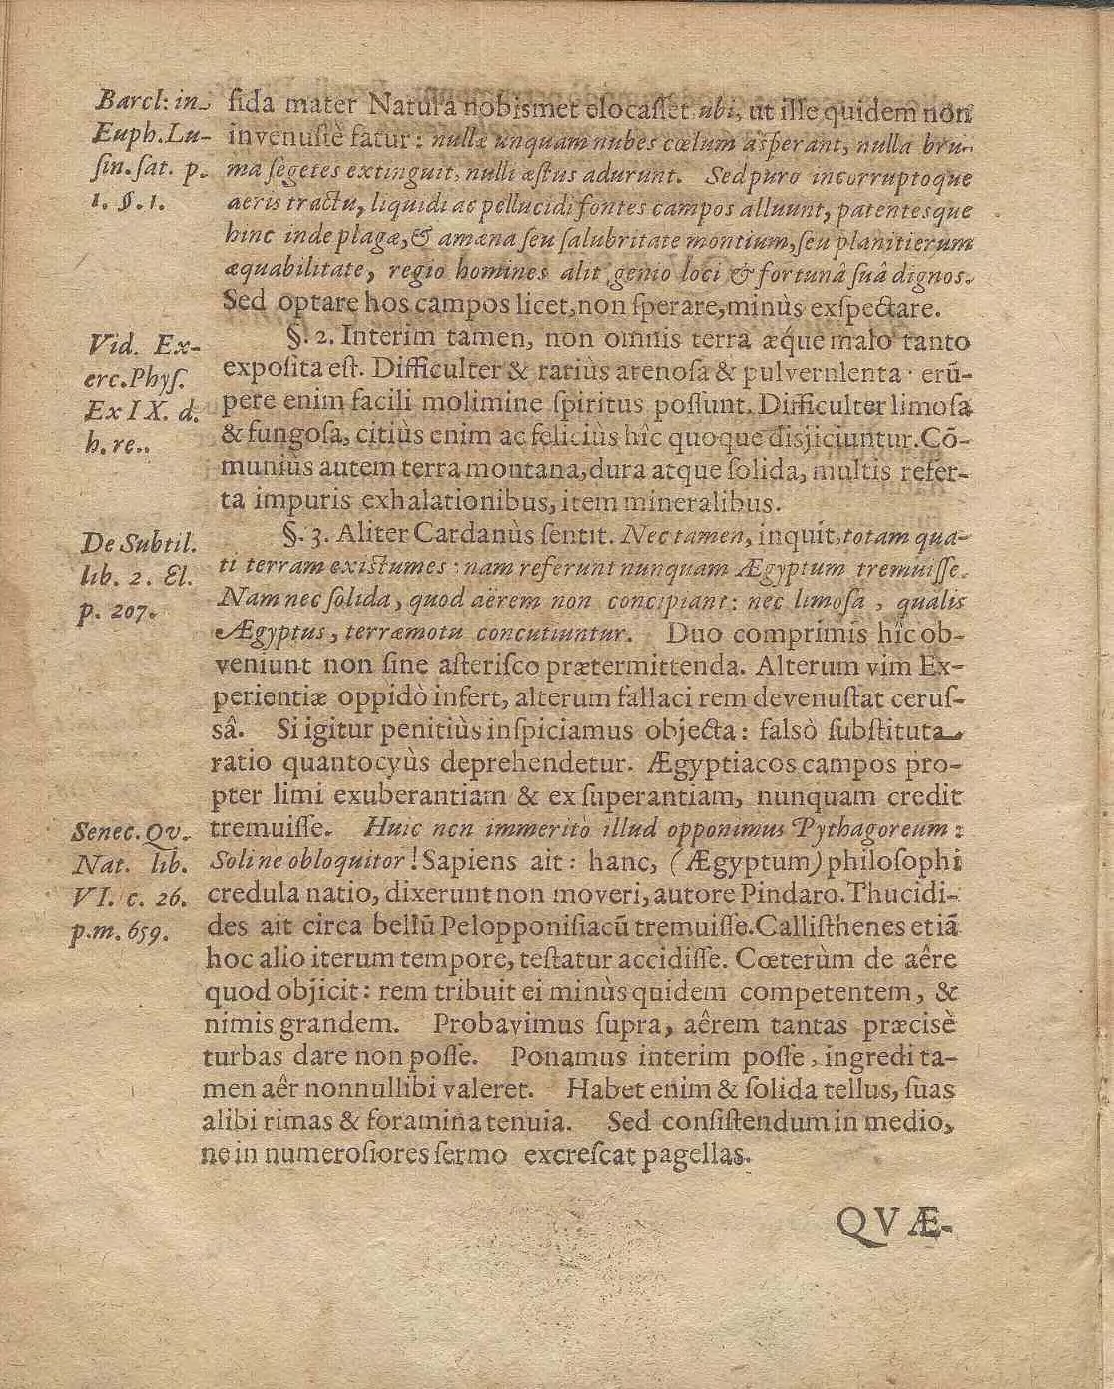 Barcl: in
Euph. Lu-
ſin. ſat. p.
1. §. 1.
ſida mater Natura nobismet elocaſſet ubi, ut ille quidem non
invenuſtè fatur: nullæ unquam nubes cœlum aſperant, nulla bru-
ma ſegetes extinguit, nulli æſtus adurunt. Sed puro incorruptoque
aeris tractu, liquidi ac pellucidi fontes campos alluunt, patentesque
hinc inde plagæ, & amœna ſeu ſalubritate montium, ſeu planitierum
æquabilitate, regio homines alit genio loci & fortunâ ſuâ dignos.
Sed optare hos campos licet, non ſperare, minùs exſpectare.
Vid. Ex-
erc. Phyſ.
Ex IX. d.
h. re..
§. 2. Interim tamen, non omnis terra æq́ue malo tanto
expoſita eſt. Difficulter & rariùs arenoſa & pulvernlenta · erū-
pere enim facili molimine ſpiritus poſſunt. Difficulter limoſa
& fungoſa, citiùs enim ac feliciùs hîc quoque disjiciuntur. Cō-
munius autem terra montana, dura atque ſolida, multis refer-
ta impuris exhalationibus, item mineralibus.
De Subtil.
lib. 2. El.
p. 207.
§. 3. Aliter Cardanùs ſentit. Nec tamen, inquit, totam qua-
ti terram exiſtumes: nam referunt nunquam Ægyptum tremuiſſe.
Nam nec ſolida, quod aërem non concipiant: nec limoſa, qualis
Ægyptus, terræmotu concutiuntur. Duo comprimis hîc ob-
veniunt non ſine aſteriſco prætermittenda. Alterum vim Ex-
perientiæ oppidò infert, alterum fallaci rem devenuſtat ceruſ-
sâ. Si igitur penitiùs inſpiciamus objecta: falsò ſubſtituta
ratio quantocyùs deprehendetur. Ægyptiacos campos pro-
pter limi exuberantiam & exſuperantiam, nunquam credit
Senec. Qv.
Nat. lib.
VI. c. 26.
p. m. 659.
tremuiſſe. Huic non immeritò illud opponimus Pythagoreum:
Soli ne obloquitor! Sapiens ait: hanc, (Ægyptum) philoſophi
credula natio, dixerunt non moveri, autore Pindaro. Thucidi-
des ait circa bellū Pelopponiſiacū tremuiſſe. Calliſthenes etiā
hoc alio iterum tempore, teſtatur accidiſſe. Cœterùm de aêre
quod objicit: rem tribuit ei minùs quidem competentem, &
nimis grandem. Probavimus ſupra, aêrem tantas præcisè
turbas dare non poſſe. Ponamus interim poſſe, ingredi ta-
men aêr nonnullibi valeret. Habet enim & ſolida tellus, ſuas
alibi rimas & foramina tenuia. Sed conſiſtendum in medio,
ne in numeroſiores ſermo excreſcat pagellas.
QVÆ-